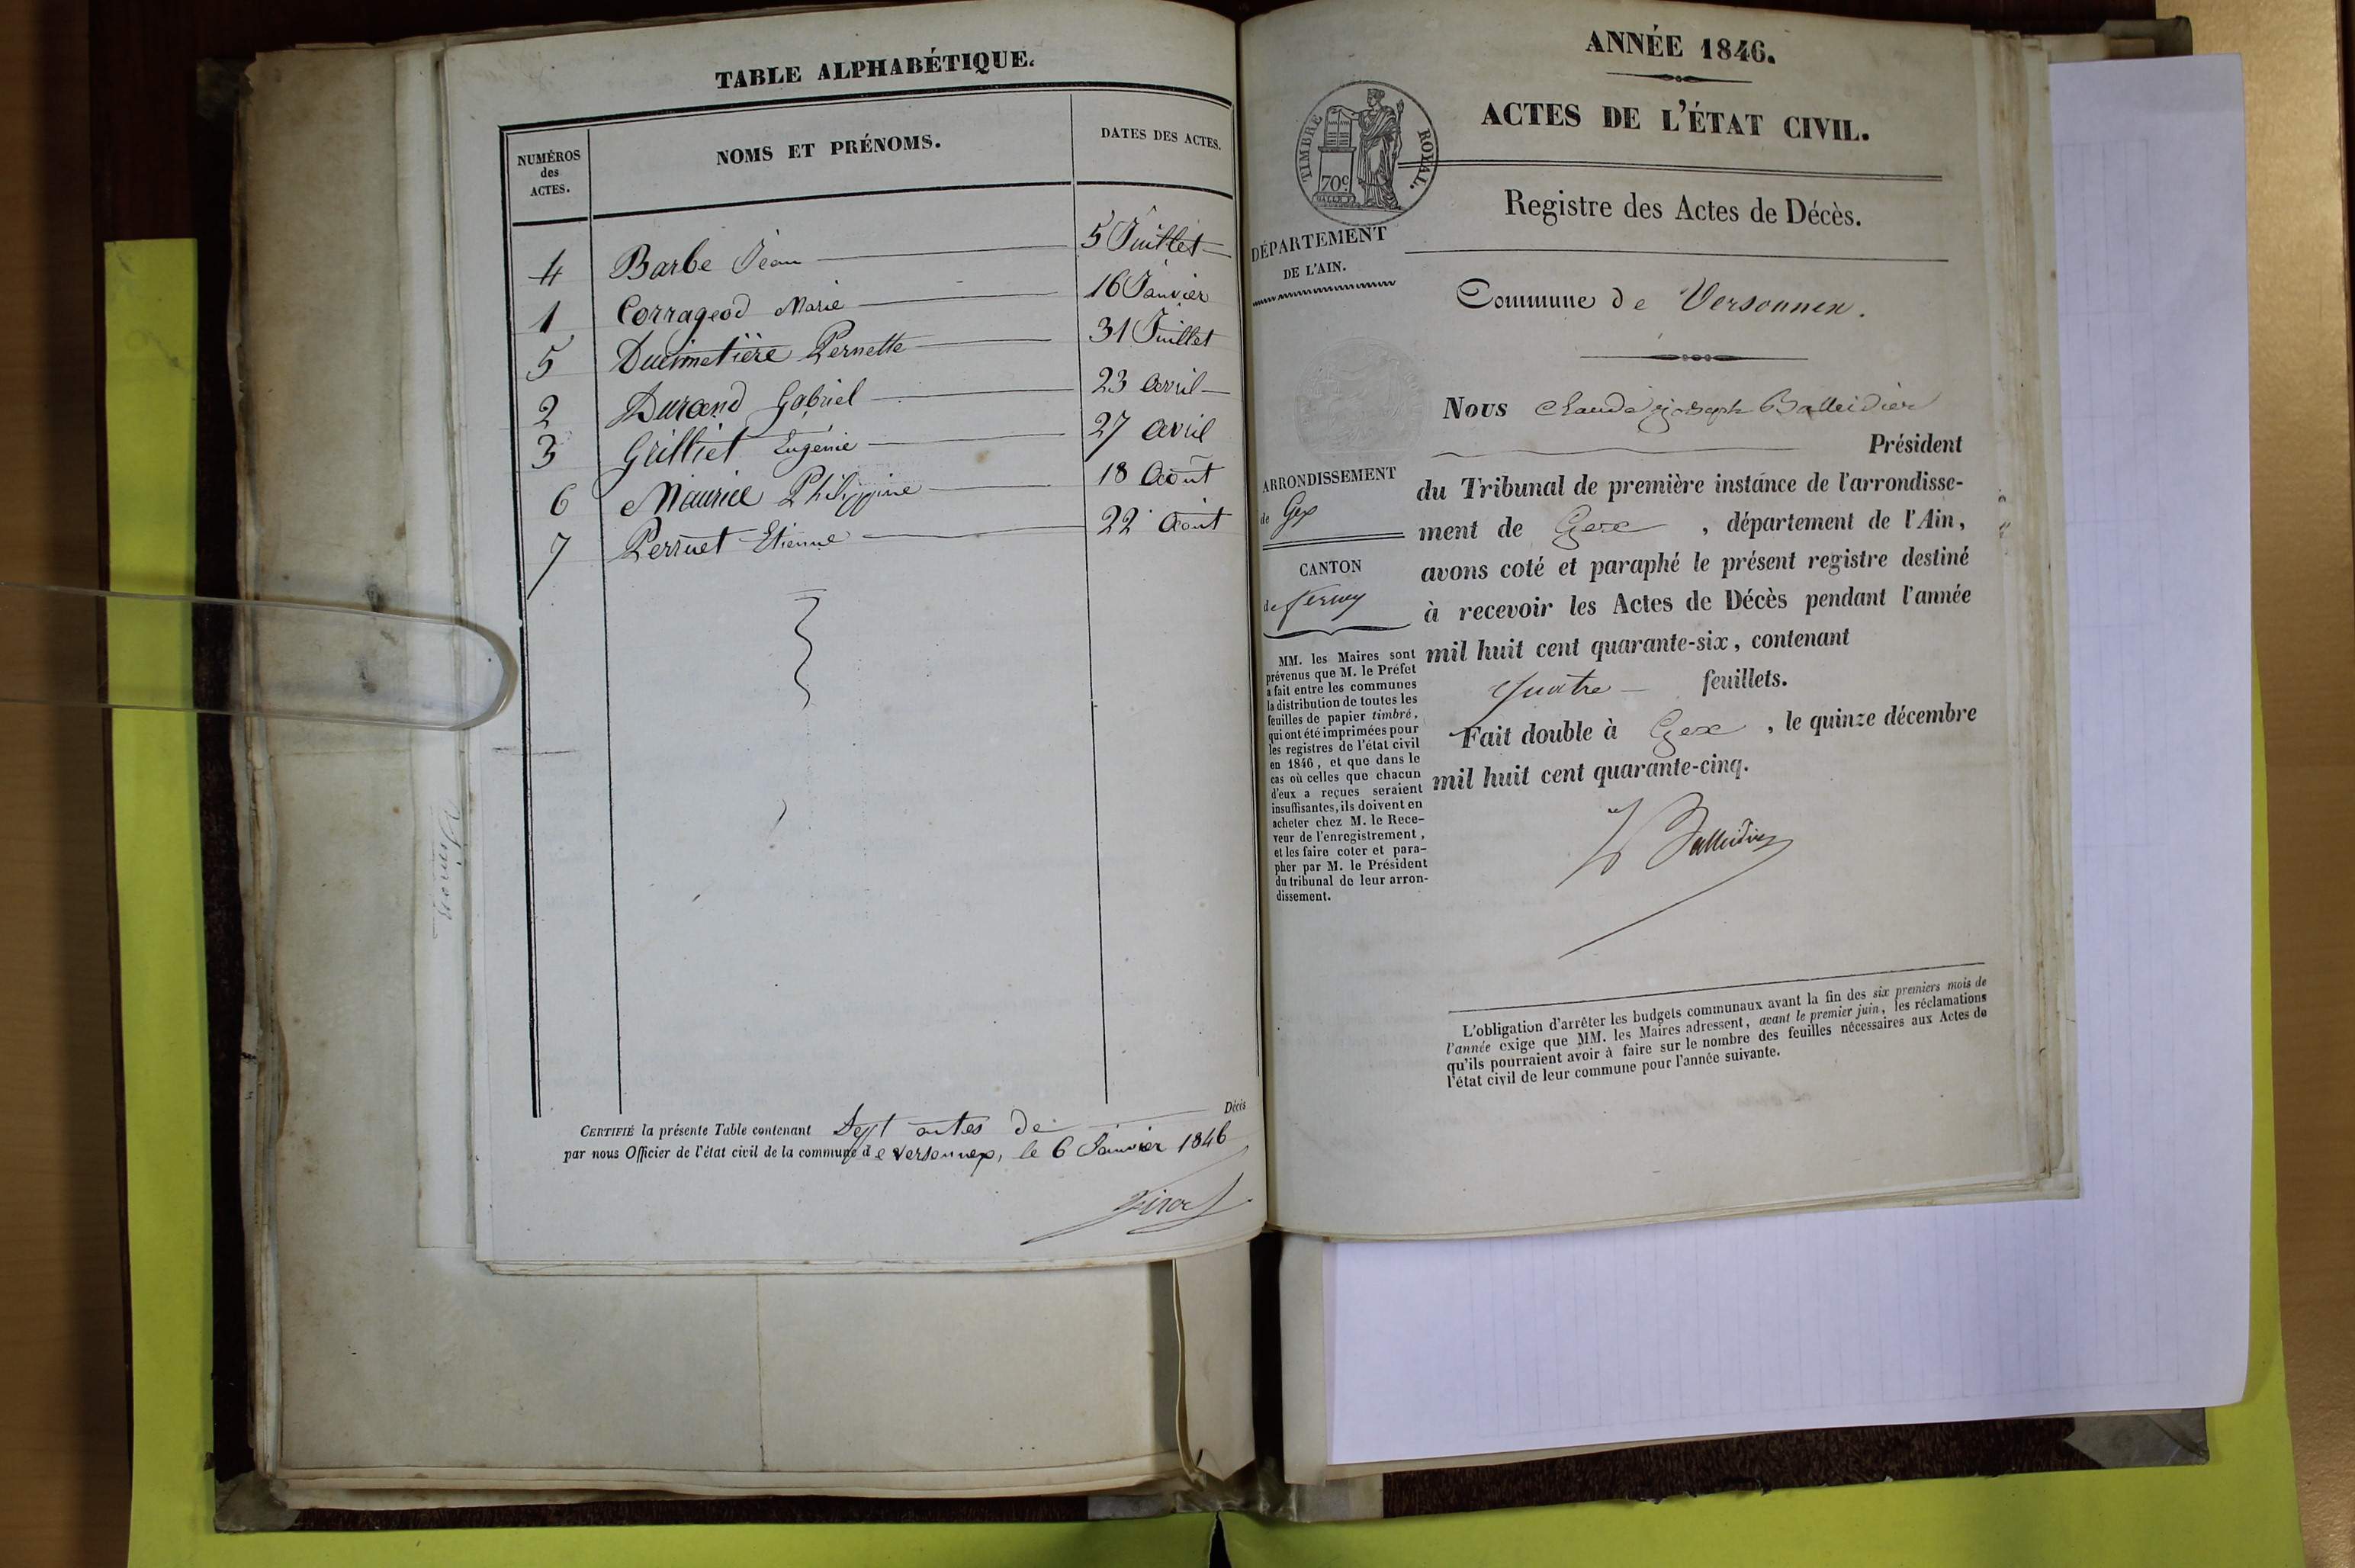 TABLE ALPHABÉTIQUE.
NUMÉROS
des
ACTES.
NOMS ET PRÉNOMS.
DATES DES ACTES.
4 Barbe Jean 5 Juillet
1 Corrageod Marie 16 Janvier
5 Ducimetière Pernette 31 Juillet
2 Durand Gabriel 23 avril
3 Grilliet Eugénie 27 avril
6 Mauriel Philippine 18 Août
7 Perruet Etienne 22 Août
CERTIFIÉ la présente Table contenant Sept actes de Décès
par nous Officier de l'état civil de la commune de Versonnex, le 6 Janvier 1846
ANNÉE 1846.
ACTES DE L'ÉTAT CIVIL.
TIMBRE ROYAL.
70c
Registre des Actes de Décès.
DÉPARTEMENT
DE L'AIN.
Commune de Versonnex.
Nous Claude joseph Balleidier
Président
ARRONDISSEMENT
de Gex
CANTON
de Ferney
du Tribunal de première instance de l'arrondisse-
ment de Gex, département de l'Ain,
avons coté et paraphé le présent registre destiné
à recevoir les Actes de Décès pendant l'année
mil huit cent quarante-six, contenant
quatre feuillets.
Fait double à Gex, le quinze décembre
mil huit cent quarante-cinq.
Balleidier
MM. les Maires sont
prévenus que M. le Préfet
a fait entre les communes
la distribution de toutes les
feuilles de papier timbré,
qui ont été imprimées pour
les registres de l'état civil
en 1846, et que dans le
cas où celles que chacun
d'eux a reçues seraient
insuffisantes, ils doivent en
acheter chez M. le Rece-
veur de l'enregistrement,
et les faire coter et para-
pher par M. le Président
du tribunal de leur arron-
dissement.
L'obligation d'arrêter les budgets communaux avant la fin des six premiers mois de
l'année exige que MM. les Maires adressent, avant le premier juin, les réclamations
qu'ils pourraient avoir à faire sur le nombre des feuilles nécessaires aux Actes de
l'état civil de leur commune pour l'année suivante.